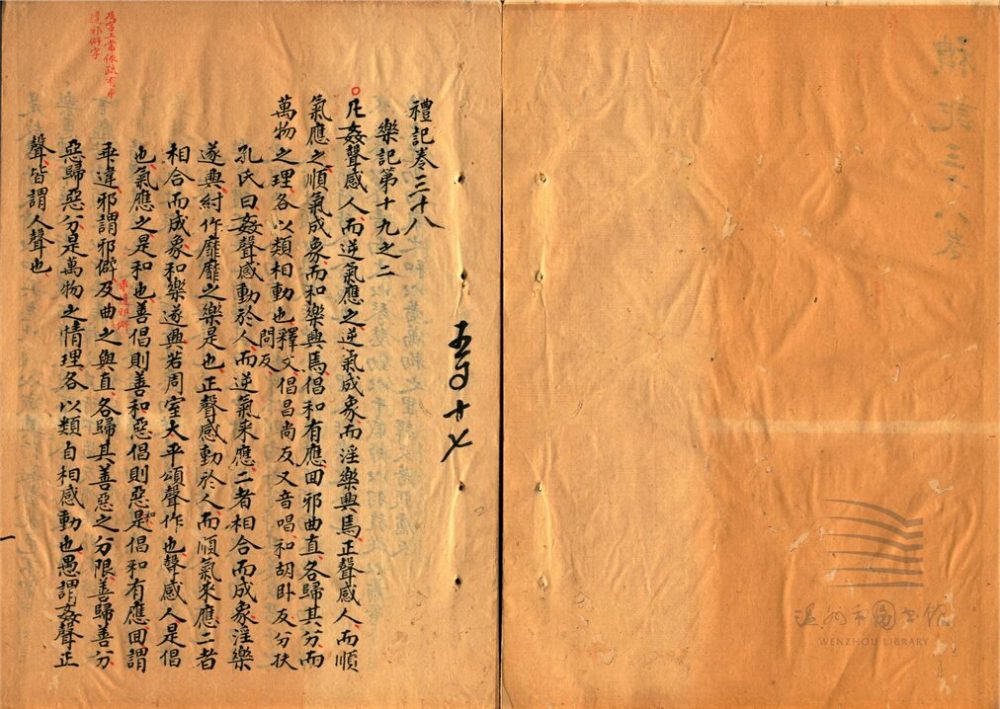 禮記卷三十八
樂記第十九之二
凡姦聲感人而逆氣應之逆氣成象而淫樂興焉正聲感人而順
氣應之順氣成象而和樂興焉倡和有應回邪曲直各歸其分而
萬物之理各以類相動也釋文倡昌尚反又音唱和胡卧反分扶
問反
孔氏曰姦聲感動於人而逆氣来應二者相合而成象淫樂
遂興紂作靡靡之樂是也正聲感動於人而順氣來應二者
相合而成象和樂遂興若周室大平頌聲作也聲感人是倡
也氣應之是和也善倡則善和惡倡則惡和是倡和有應回謂
乖違邪謂邪僻及曲之與直各歸其善惡之分限善歸善分
惡歸惡分是萬物之情理各以類自相感動也愚謂姦聲正
聲皆謂人聲也
五百十七
一
禮記三十八卷
溫州市圖書館
WENZHOU LIBRARY